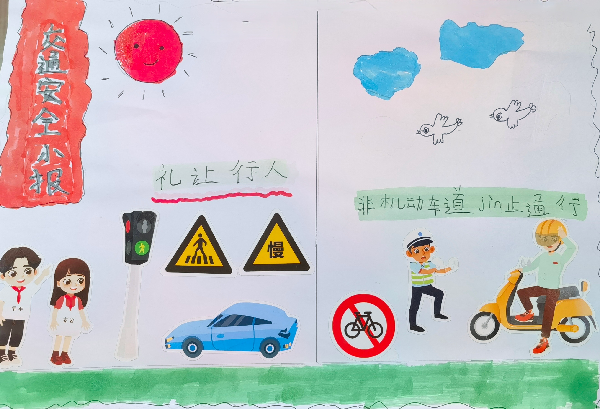 交通安全小报
礼让行人
非机动车道jin止通行
慢